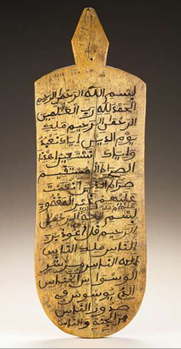 بسم الله الرحمن الرحيم
الحمد لله رب العلمين
الرحمن الرحيم ملك
يوم الدين إياك نعبد
وإياك نستعين اهدنا
الصراط المستقيم
صراط الذين أنعمت
عليهم غير المغضوب
بسم الله الرحمن
الرحيم قل أعوذ برب
الناس ملك الناس
إله الناس من شر
الوسواس الخناس
الذي يوسوس في
صدور الناس
من الجنة والناس